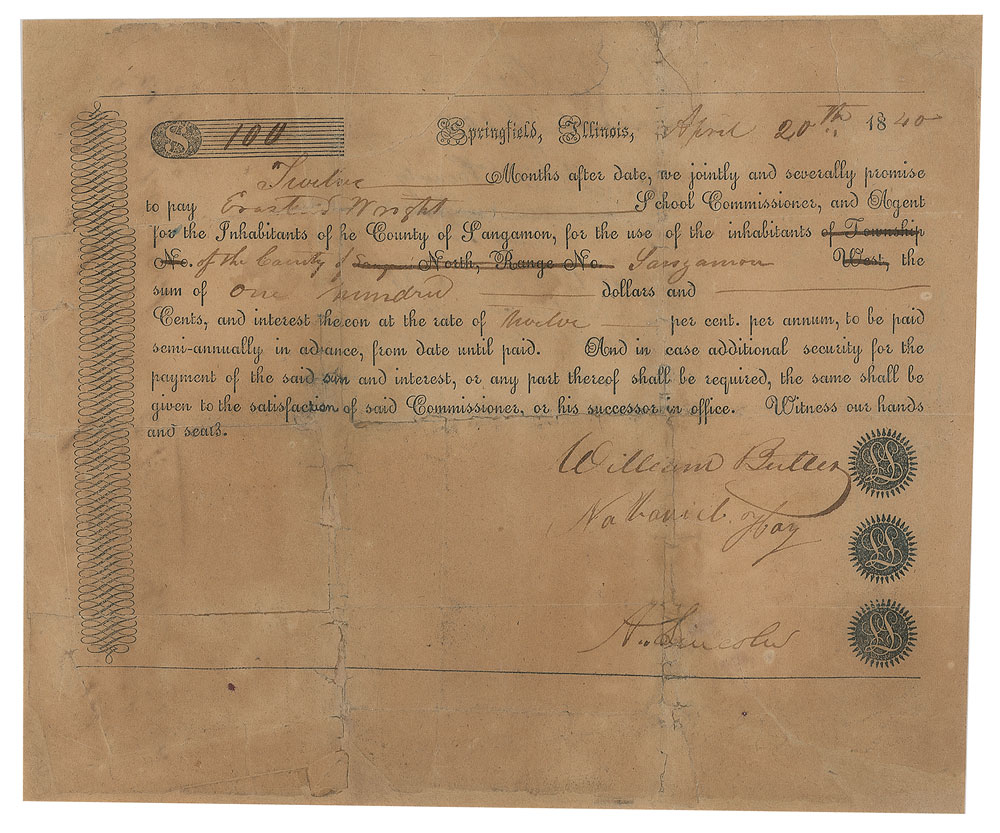 $ 100 Springfield, Illinois, April 20th 1840
Twelve Months after date, we jointly and severally promise
to pay Erastus Wright School Commissioner, and Agent
for the Inhabitants of he County of Sangamon, for the use of the inhabitants of Township
No. of the County of North, Range No. Sangamon West, the
sum of One hundred dollars and
Cents, and interest thereon at the rate of twelve per cent. per annum, to be paid
semi-annually in advance, from date until paid. And in case additional security for the
payment of the said sum and interest, or any part thereof shall be required, the same shall be
given to the satisfaction of said Commissioner, or his successor in office. Witness our hands
and seals.
William Butler LS
Nathaniel Hay LS
A. Lincoln LS